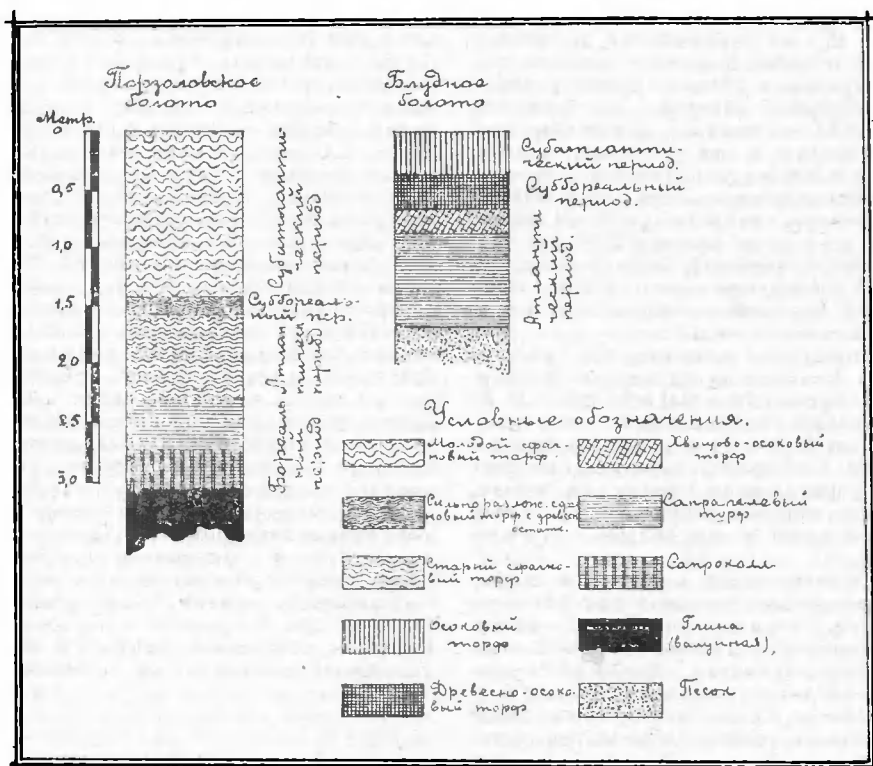 Порзоловское
болото
Блудное
болото
Метр.
0
0,5
1,0
1,5
2,0
2,5
3,0
Субатланти-
ческий
период
Суббореаль-
ный пер.
Атлан-
тичей
период
Бореаль-
ный
период
Субатланти-
ческий период.
Суббореальный
период.
Атланти-
ческий
период
Условные обозначения.
Молодой сфаг-
новый торф.
Сильно разлож. сфаг-
новый торф с древесн.
остатк.
Старый сфагно-
вый торф
Осоковый
торф
Древесно-осоко-
вый торф
Хвощово-осоковый
торф
Сапропелевый
торф
Сапроколл
Глина
(валунная),
Песок